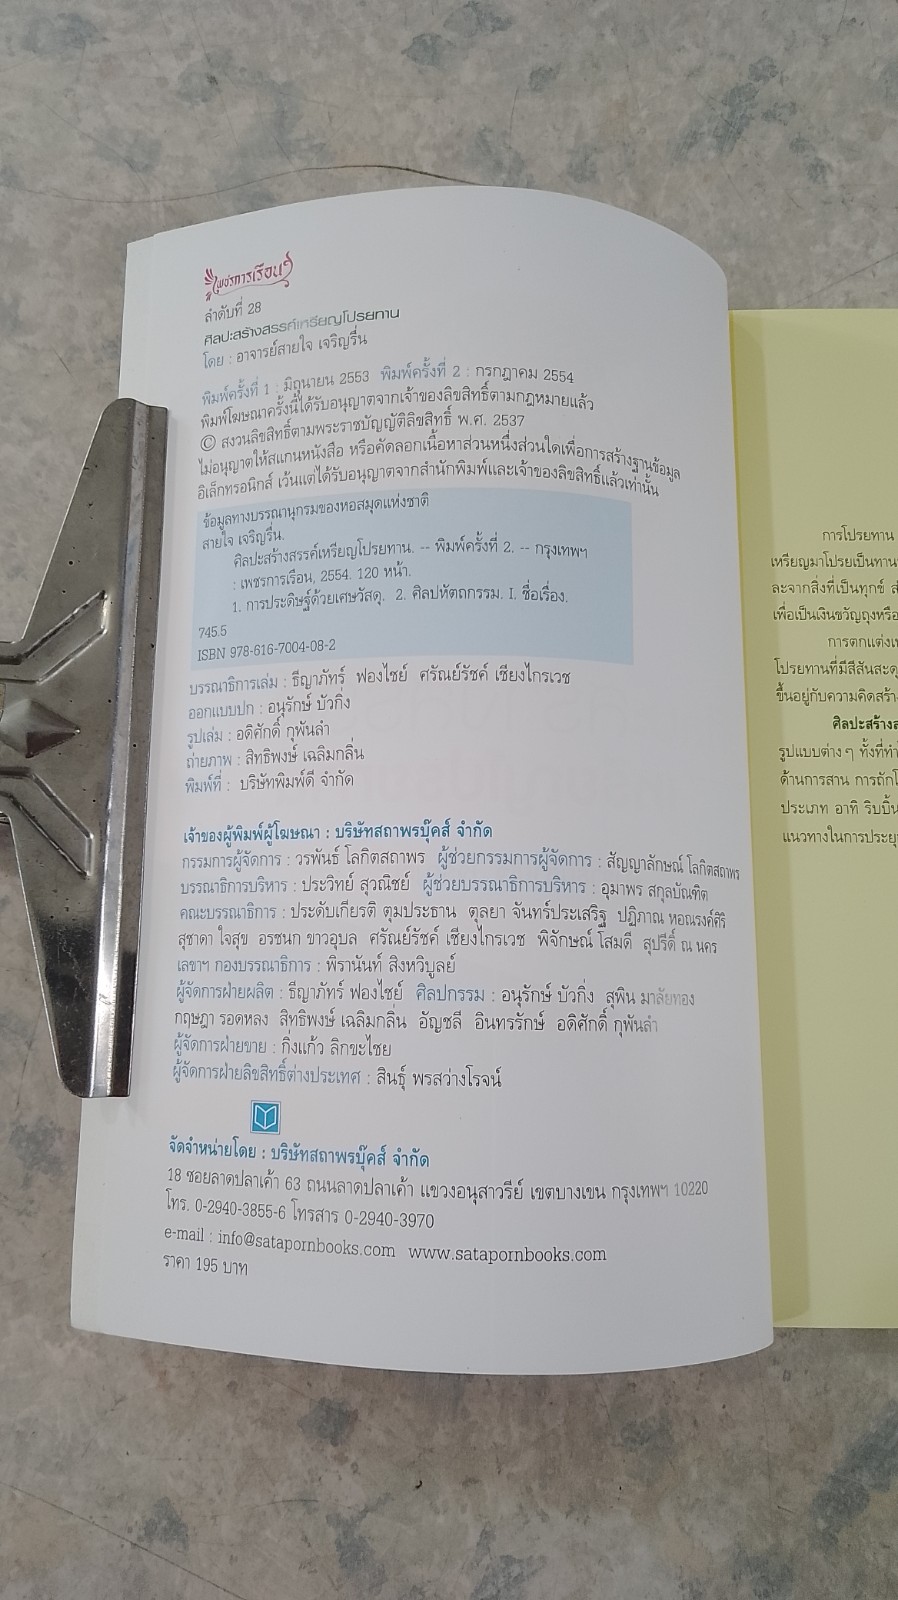 เพชรการเรือน
ลำดับที่ 28
ศิลปะสร้างสรรค์เหรียญโปรยทาน
โดย : อาจารย์สายใจ เจริญรื่น
พิมพ์ครั้งที่ 1 : มิถุนายน 2553 พิมพ์ครั้งที่ 2 : กรกฎาคม 2554
พิมพ์โฆษณาครั้งนี้ได้รับอนุญาตจากเจ้าของลิขสิทธิ์ตามกฎหมายแล้ว
© สงวนลิขสิทธิ์ตามพระราชบัญญัติลิขสิทธิ์ พ.ศ. 2537
ไม่อนุญาตให้สแกนหนังสือ หรือคัดลอกเนื้อหาส่วนหนึ่งส่วนใดเพื่อการสร้างฐานข้อมูล
อิเล็กทรอนิกส์ เว้นแต่ได้รับอนุญาตจากสำนักพิมพ์และเจ้าของลิขสิทธิ์แล้วเท่านั้น
ข้อมูลทางบรรณานุกรมของหอสมุดแห่งชาติ
สายใจ เจริญรื่น.
ศิลปะสร้างสรรค์เหรียญโปรยทาน. -- พิมพ์ครั้งที่ 2. -- กรุงเทพฯ
: เพชรการเรือน, 2554. 120 หน้า.
1. การประดิษฐ์ด้วยเศษวัสดุ. 2. ศิลปหัตถกรรม. I. ชื่อเรื่อง.
745.5
ISBN 978-616-7004-08-2
บรรณาธิการเล่ม : ธีญาภัทร์ ฟองไชย์ ศรัณย์รัชค์ เชียงไกรเวช
ออกแบบปก : อนุรักษ์ บัวกิ่ง
รูปเล่ม : อดิศักดิ์ กุพันลำ
ถ่ายภาพ : สิทธิพงษ์ เฉลิมกลิ่น
พิมพ์ที่ : บริษัทพิมพ์ดี จำกัด
เจ้าของผู้พิมพ์ผู้โฆษณา : บริษัทสถาพรบุ๊คส์ จำกัด
กรรมการผู้จัดการ : วรพันธ์ โลกิตสถาพร ผู้ช่วยกรรมการผู้จัดการ : สัญญาลักษณ์ โลกิตสถาพร
บรรณาธิการบริหาร : ประวิทย์ สุวณิชย์ ผู้ช่วยบรรณาธิการบริหาร : อุมาพร สกุลบัณฑิต
คณะบรรณาธิการ : ประดับเกียรติ ตุมประธาน ตุลยา จันทร์ประเสริฐ ปฏิภาณ หอณรงค์ศิริ
สุชาดา ใจสุข อรชนก ขาวอุบล ศรัณย์รัชค์ เชียงไกรเวช พิจักษณ์ โสมดี สุปรีดิ์ ณ นคร
เลขาฯ กองบรรณาธิการ : พิรานันท์ สิงหวิบูลย์
ผู้จัดการฝ่ายผลิต : ธีญาภัทร์ ฟองไชย์ ศิลปกรรม : อนุรักษ์ บัวกิ่ง สุพิน มาลัยทอง
กฤษฎา รอดหลง สิทธิพงษ์ เฉลิมกลิ่น อัญชลี อินทรรักษ์ อดิศักดิ์ กุพันลำ
ผู้จัดการฝ่ายขาย : กิ่งแก้ว ลิกขะไชย
ผู้จัดการฝ่ายลิขสิทธิ์ต่างประเทศ : สินธุ์ พรสว่างโรจน์
จัดจำหน่ายโดย : บริษัทสถาพรบุ๊คส์ จำกัด
18 ซอยลาดปลาเค้า 63 ถนนลาดปลาเค้า แขวงอนุสาวรีย์ เขตบางเขน กรุงเทพฯ 10220
โทร. 0-2940-3855-6 โทรสาร 0-2940-3970
e-mail : info@satapornbooks.com www.satapornbooks.com
ราคา 195 บาท
การโปรยทาน
เหรียญมาโปรยเป็นทาน
ละจากสิ่งที่เป็นทุกข์
เพื่อเป็นเงินขวัญถุงหรือ
การตกแต่ง
โปรยทานที่มีสีสัน
ขึ้นอยู่กับความคิดสร้า
ศิลปะสร้าง
รูปแบบต่าง ๆ ทั้งที่ทำ
ด้านการสาน การถัก
ประเภท อาทิ ริบบิ้น
แนวทางในการประยุ